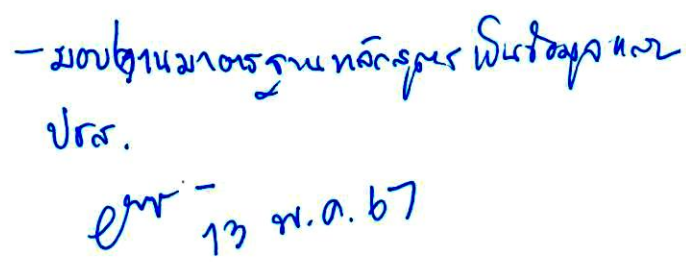 - มอบงานมาตรฐานหลักสูตร เป็นข้อมูล และ
ปชส.
13 พ.ค. 67